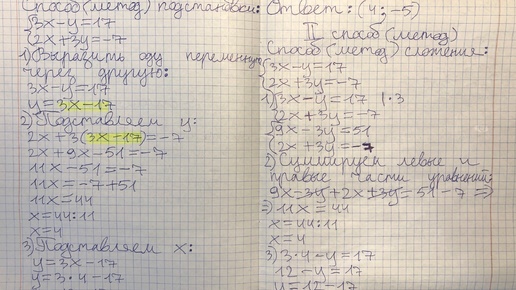 Способ(метод) подстановки:
{3x-y=17
{2x+3y=-7
1)Выразить одну переменную
через другую:
3x-y=17
y=3x-17
2)Подставляем y:
2x+3(3x-17)=-7
2x+9x-51=-7
11x-51=-7
11x=-7+51
11x=44
x=44:11
x=4
3)Подставляем x:
y=3x-17
y=3·4-17
Ответ: (4;-5)
II способ(метод)
Способ(метод) сложения:
{3x-y=17
{2x+3y=-7
1){3x-y=17 |·3
{2x+3y=-7
{9x-3y=51
{2x+3y=-7
2)Суммируем левые и
правые части уравнений:
9x-3y+2x+3y=51-7 =>
=>11x=44
x=44:11
x=4
3)3·4-y=17
12-y=17
y=12-17